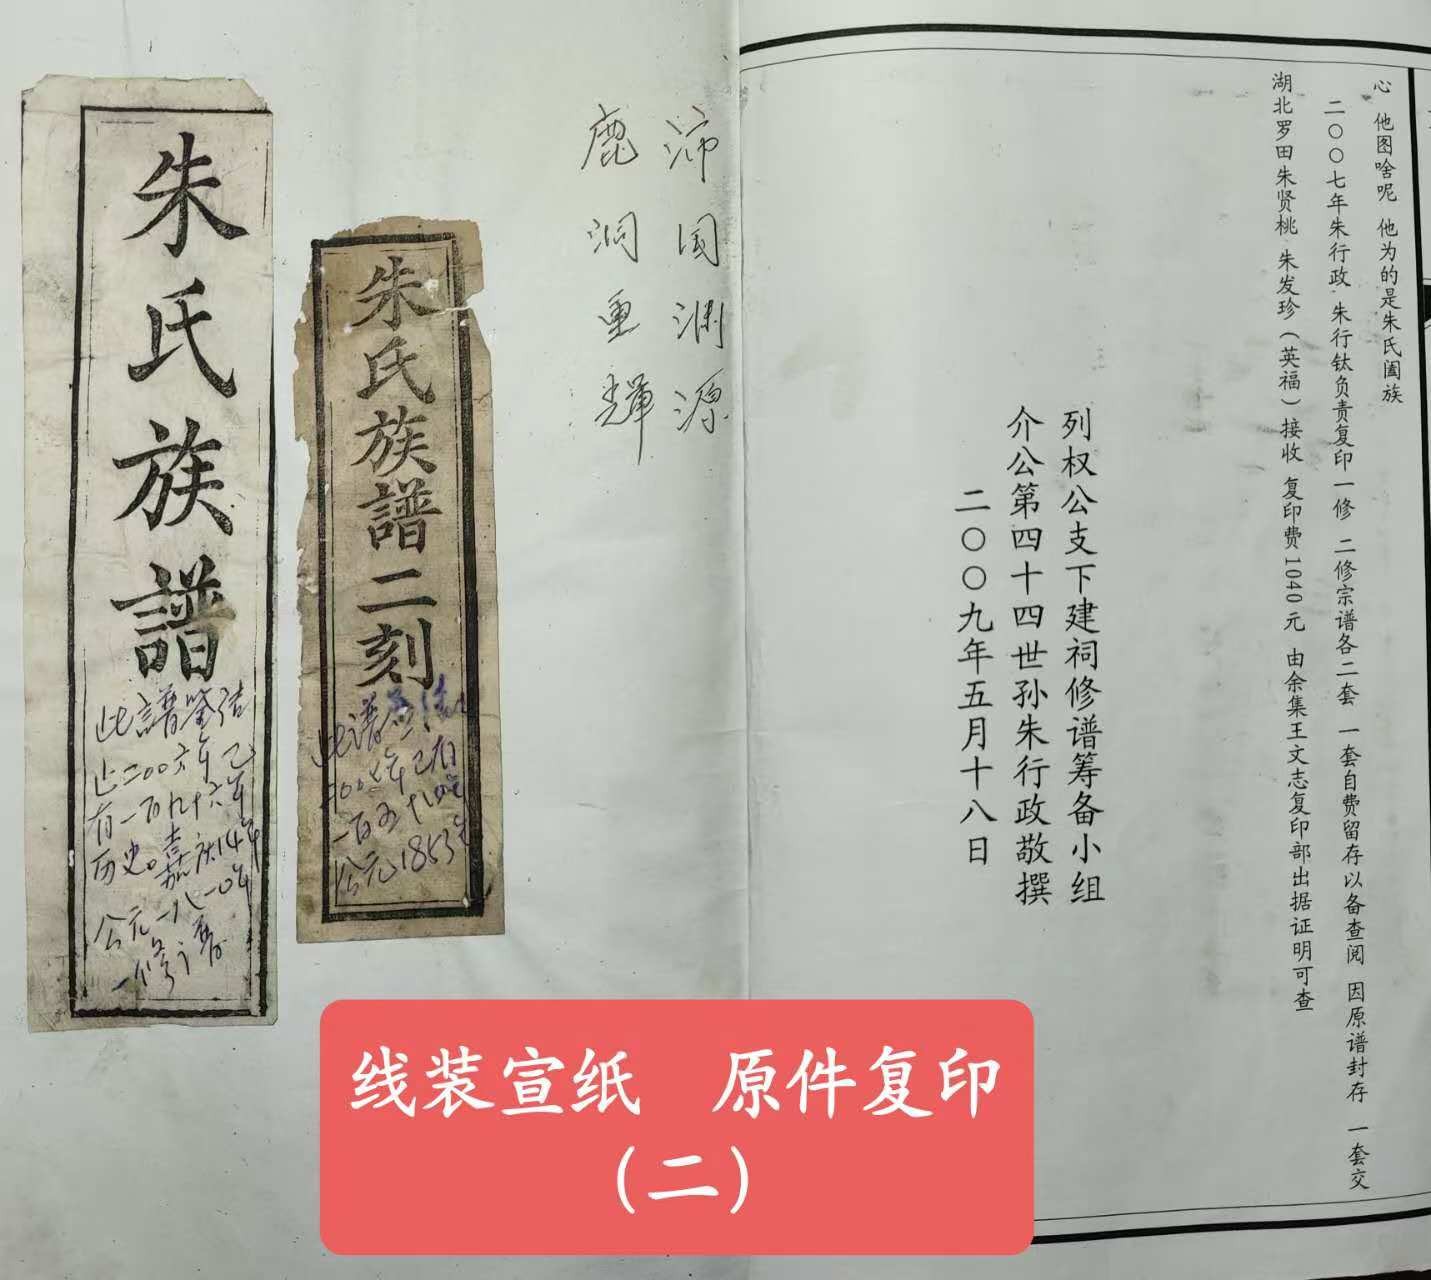 心 他图啥呢 他为的是朱氏阖族
二〇〇七年朱行政 朱行钛负责复印一修 二修宗谱各二套 一套自费留存以备查阅 因原谱封存 一套交
湖北罗田朱贤桃 朱发珍（英福）接收 复印费1040元 由余集王文志复印部出据证明可查
列权公支下建祠修谱筹备小组
介公第四十四世孙朱行政敬撰
二〇〇九年五月十八日
沛国渊源
鹿洞重輝
朱氏族譜二刻
一百五十
公元1853年
朱氏族譜
此譜鉴结
止二00六年已
有一百九十六年
历史。嘉庆14年
公元一八一0年
一修谱
线装宣纸 原件复印
（二）